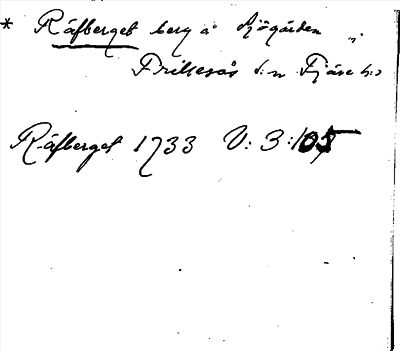 * Räfberget berg å Sjögården
Frillesås s:n Fjäre h:d
Räfberget 1733 V: 3:105